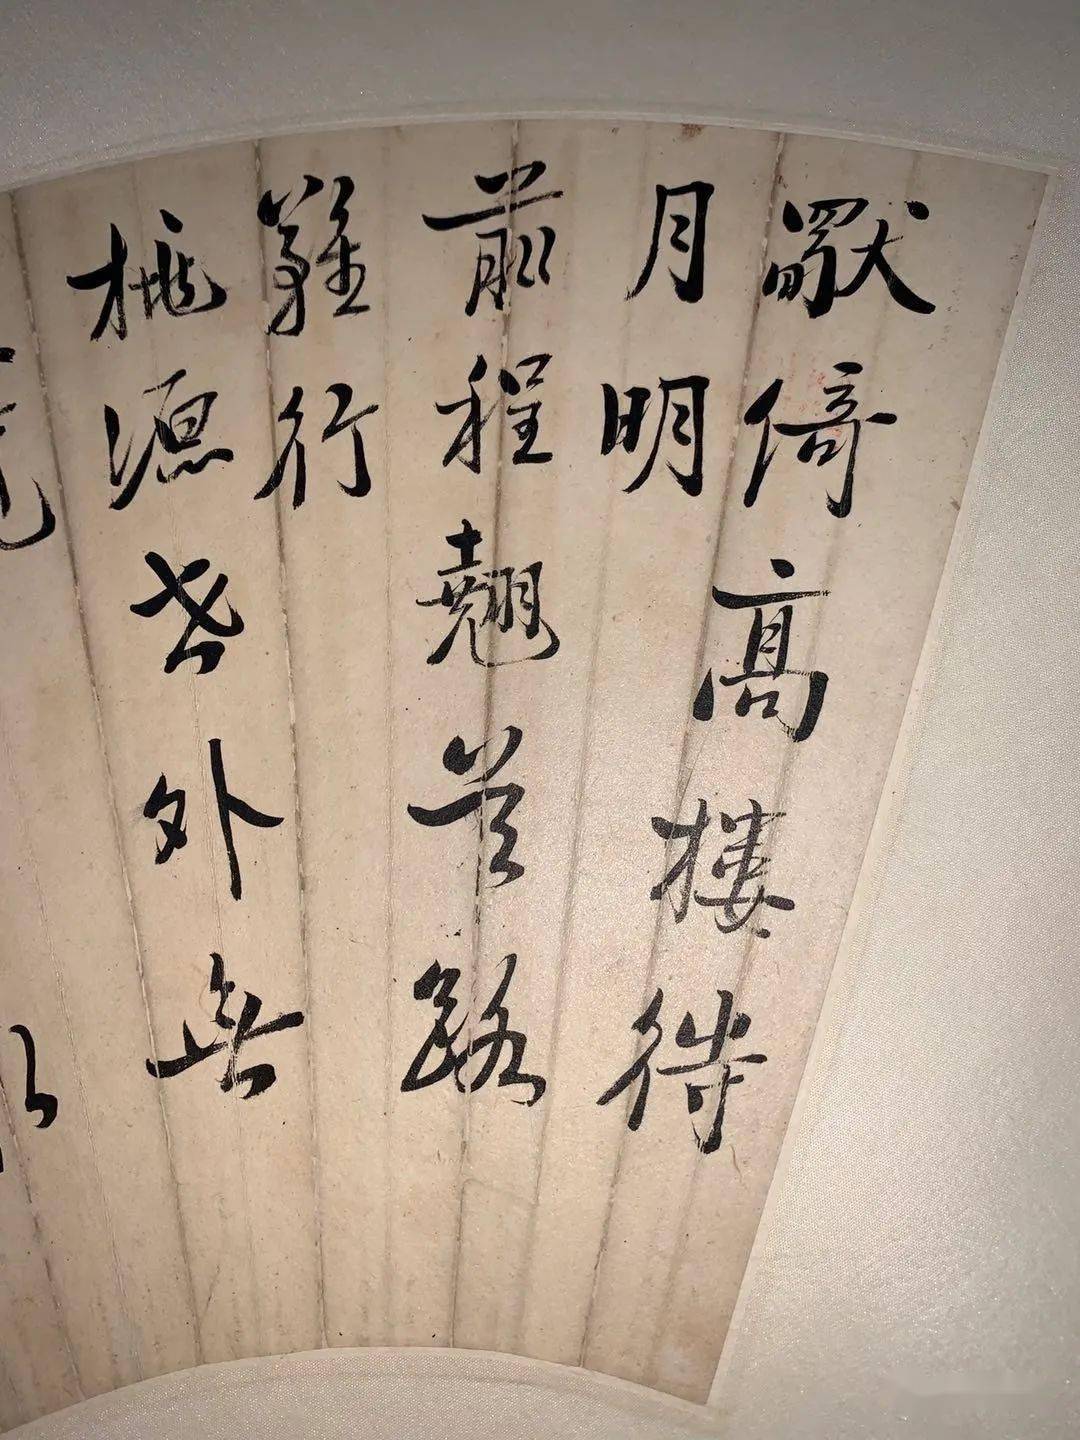 默倚高樓待
月明
前程翹首路
難行
桃源世外無